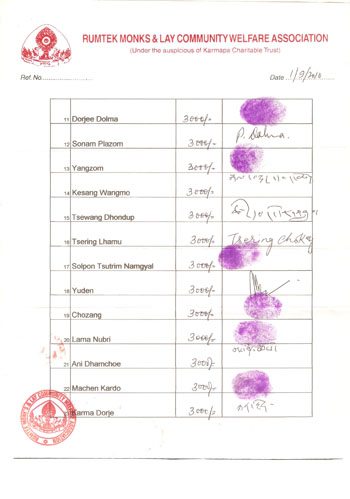 RUMTEK MONKS & LAY COMMUNITY WELFARE ASSOCIATION
(Under the auspicious of Karmapa Charitable Trust)
Ref. No.
Date 1/9/2010
11 Dorjee Dolma 3000/-
12 Sonam Plazom 3000/- P. Dolma.
13 Yangzom 3000/-
14 Kesang Wangmo 3000/-
15 Tsewang Dhondup 3000/-
16 Tsering Lhamu 3000/- Tsering
17 Solpon Tsutrim Namgyal 3000/-
18 Yuden 3000/-
19 Chozang 3000/-
20 Lama Nubri 3000/-
21 Ani Dhamchoe 3000/-
22 Machen Kardo 3000/-
Karma Dorje 3000/-
RUMTEK MONKS & LAY COMMUNITY WELFARE ASSOCIATION